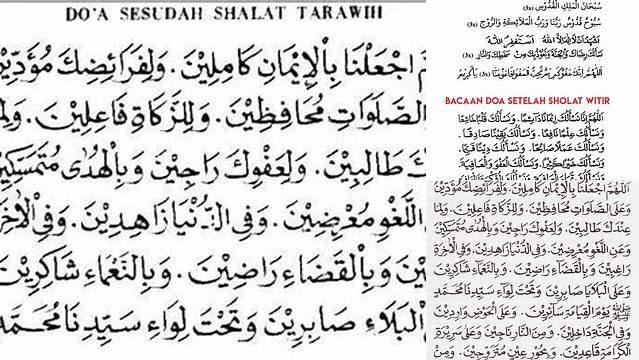 DO'A SESUDAH SHALAT TARAWIH
اجْعَلْنَا بِالْإِيْمَانِ كَامِلِيْنَ. وَلِفَرَائِضِكَ مُؤَدِّيْنَ
الصَّلَوَاتِ مُحَافِظِيْنَ. وَلِلزَّكَاةِ فَاعِلِيْنَ. وَلِمَا
طَالِبِيْنَ. وَلِعَفْوِكَ رَاجِيْنَ وَبِالْهُدَى مُتَمَسِّكِيْنَ
اللَّغْوِ مُعْرِضِيْنَ. وَفِى الدُّنْيَا زَاهِدِيْنَ. وَفِى الْآخِرَةِ
وَبِالْقَضَاءِ رَاضِيْنَ. وَبِالنَّعْمَاءِ شَاكِرِيْنَ
الْبَلَاءِ صَابِرِيْنَ وَتَحْتَ لِوَاءِ سَيِّدِنَا مُحَمَّدٍ
سُبْحَانَ الْمَلِكِ الْقُدُّوْسِ (3x)
سُبُّوْحٌ قُدُّوْسٌ رَبُّنَا وَرَبُّ الْمَلَائِكَةِ وَالرُّوْحِ (3x)
BACAAN DOA SETELAH SHOLAT WITIR
اَللّٰهُمَّ إِنَّا نَسْأَلُكَ إِيْمَانًا دَائِمًا. وَنَسْأَلُكَ قَلْبًا خَاشِعًا
وَنَسْأَلُكَ عِلْمًا نَافِعًا. وَنَسْأَلُكَ يَقِيْنًا صَادِقًا.
وَنَسْأَلُكَ عَمَلًا صَالِحًا. وَنَسْأَلُكَ دِيْنًا قَيِّمًا.
وَنَسْأَلُكَ خَيْرًا كَثِيْرًا. وَنَسْأَلُكَ الْعَفْوَ وَالْعَافِيَةَ
اَللّٰهُمَّ اجْعَلْنَا بِالْإِيْمَانِ كَامِلِيْنَ. وَلِفَرَائِضِكَ مُؤَدِّيْنَ
وَعَلَى الصَّلَوَاتِ مُحَافِظِيْنَ. وَلِلزَّكَاةِ فَاعِلِيْنَ. وَلِمَا
عِنْدَكَ طَالِبِيْنَ. وَلِعَفْوِكَ رَاجِيْنَ وَبِالْهُدَى مُتَمَسِّكِيْنَ
وَعَنِ اللَّغْوِ مُعْرِضِيْنَ. وَفِى الدُّنْيَا زَاهِدِيْنَ. وَفِى الْآخِرَةِ
رَاغِبِيْنَ وَبِالْقَضَاءِ رَاضِيْنَ. وَبِالنَّعْمَاءِ شَاكِرِيْنَ
وَعَلَى الْبَلَايَا صَابِرِيْنَ وَتَحْتَ لِوَاءِ سَيِّدِنَا مُحَمَّدٍ
ﷺ يَوْمَ الْقِيَامَةِ سَائِرِيْنَ. وَعَلَى الْحَوْضِ وَارِدِيْنَ
وَفِى الْجَنَّةِ دَاخِلِيْنَ. وَمِنَ النَّارِ نَاجِيْنَ وَعَلَى سَرِيْرَةِ
الْكَرَامَةِ قَاعِدِيْنَ. وَبِحُوْرٍ عِيْنٍ مُتَزَوِّجِيْنَ. وَمِنْ